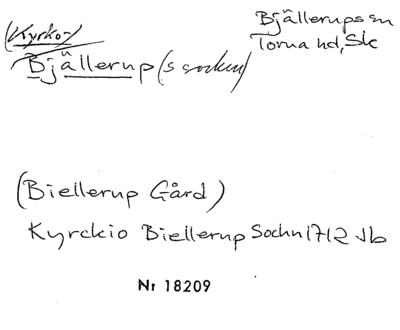 (Kyrko-)
Bjällerup (socken)
Bjällerups sn
Torna hd, Sk
(Biellerup Gård)
Kyrckio Biellerup Sochn 1712 Jb
Nr 18209